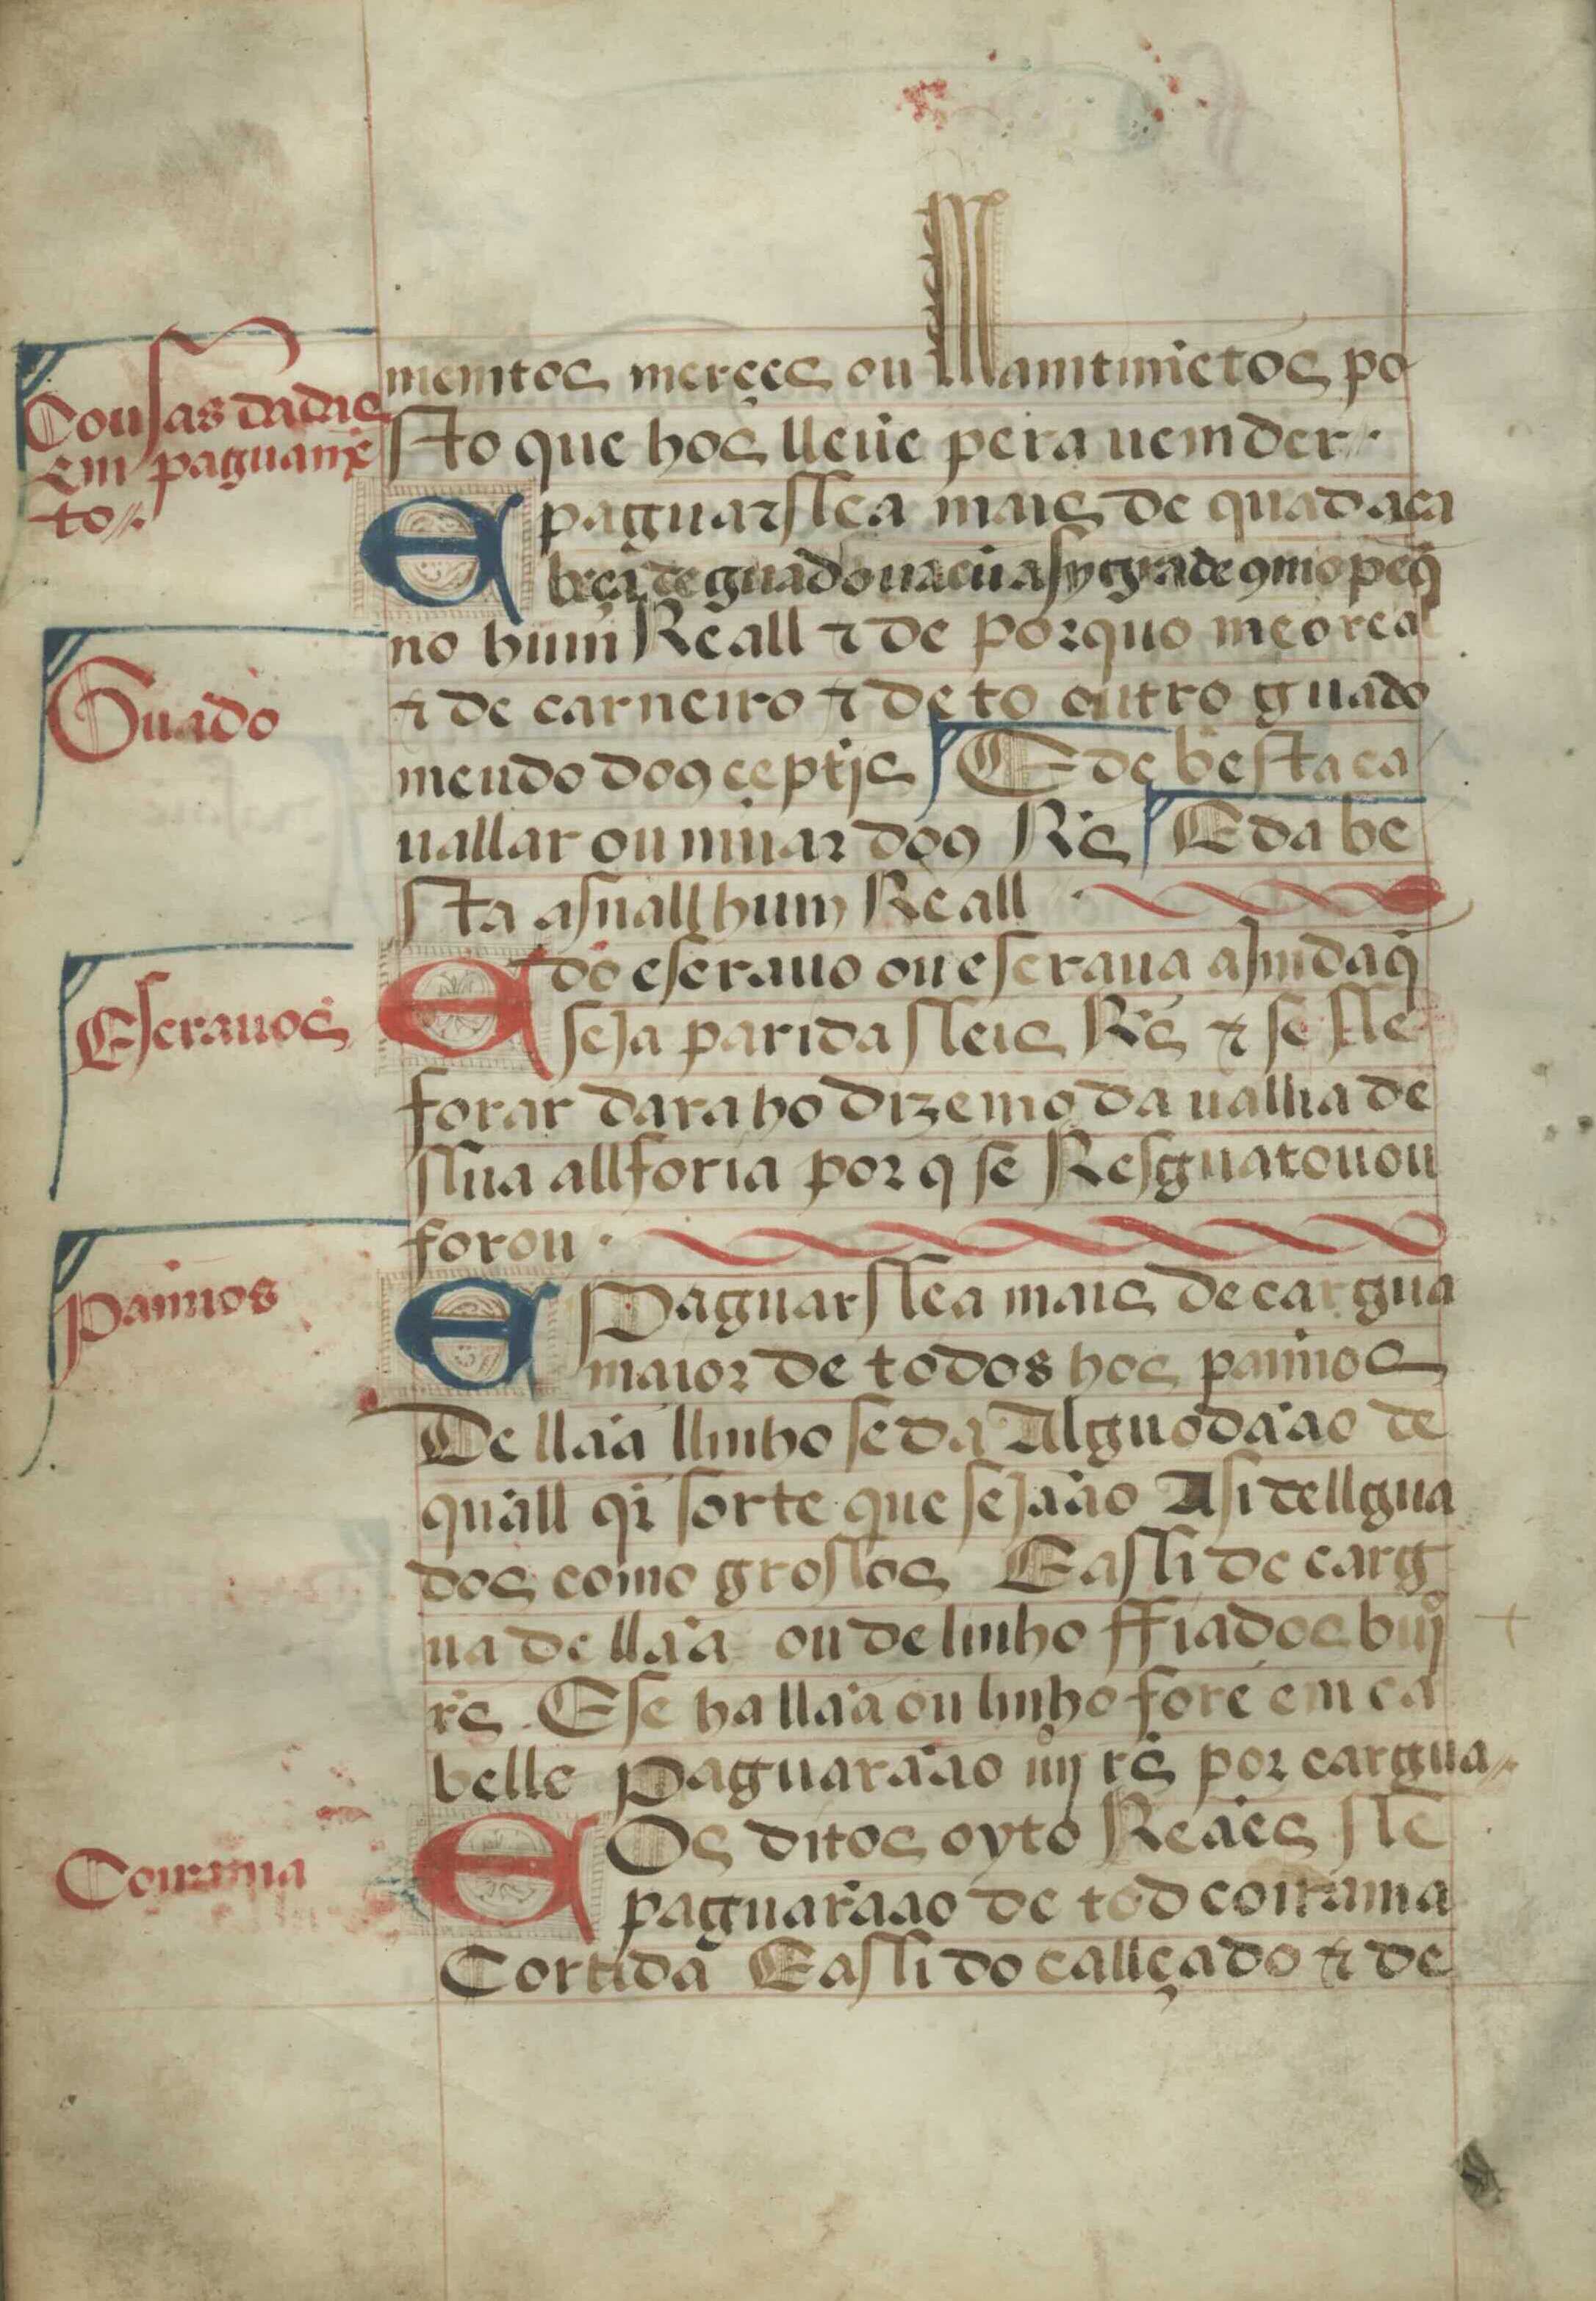 Cousas dadas
em paguamẽ
to
memtos merçes ou Mamtimẽtos po
sto que hos lleue pera uemder
E paguarssea mais de quada ca
beça de guado uacũ asy grãde 9mo peq̃
no hum Reall ⁊ de porquo meo real
Guado
⁊ de carneiro ⁊ de to outro guado
meudo do9 çeptijs E de besta ca
uallar ou muar do9 Rs E da be
sta asnall hum Reall
Escrauos
E do escrauo ou escraua aimda q̃
seja parida sseis Rs ⁊ se sse
forar dara ho dizemo da uallia de
ssua allforia por q se Resguatou ou
forou
Pannos
E Paguarssea mais de cargua
maior de todos hos pannos
De llãa llinho seda Alguodãao de
quall qr̃ sorte que sejãao Asi dellgua
dos como grossos E assi de carg
ua de llãa ou de linho ffiados biij
rs E se ha llãa ou linho forẽ em ca
bello paguarãao iiij rs por cargua
Coirama
E Os ditos oyto Reaes ssẽ
paguarãao de tod coirama
Cortida E assi do callçado ⁊ de